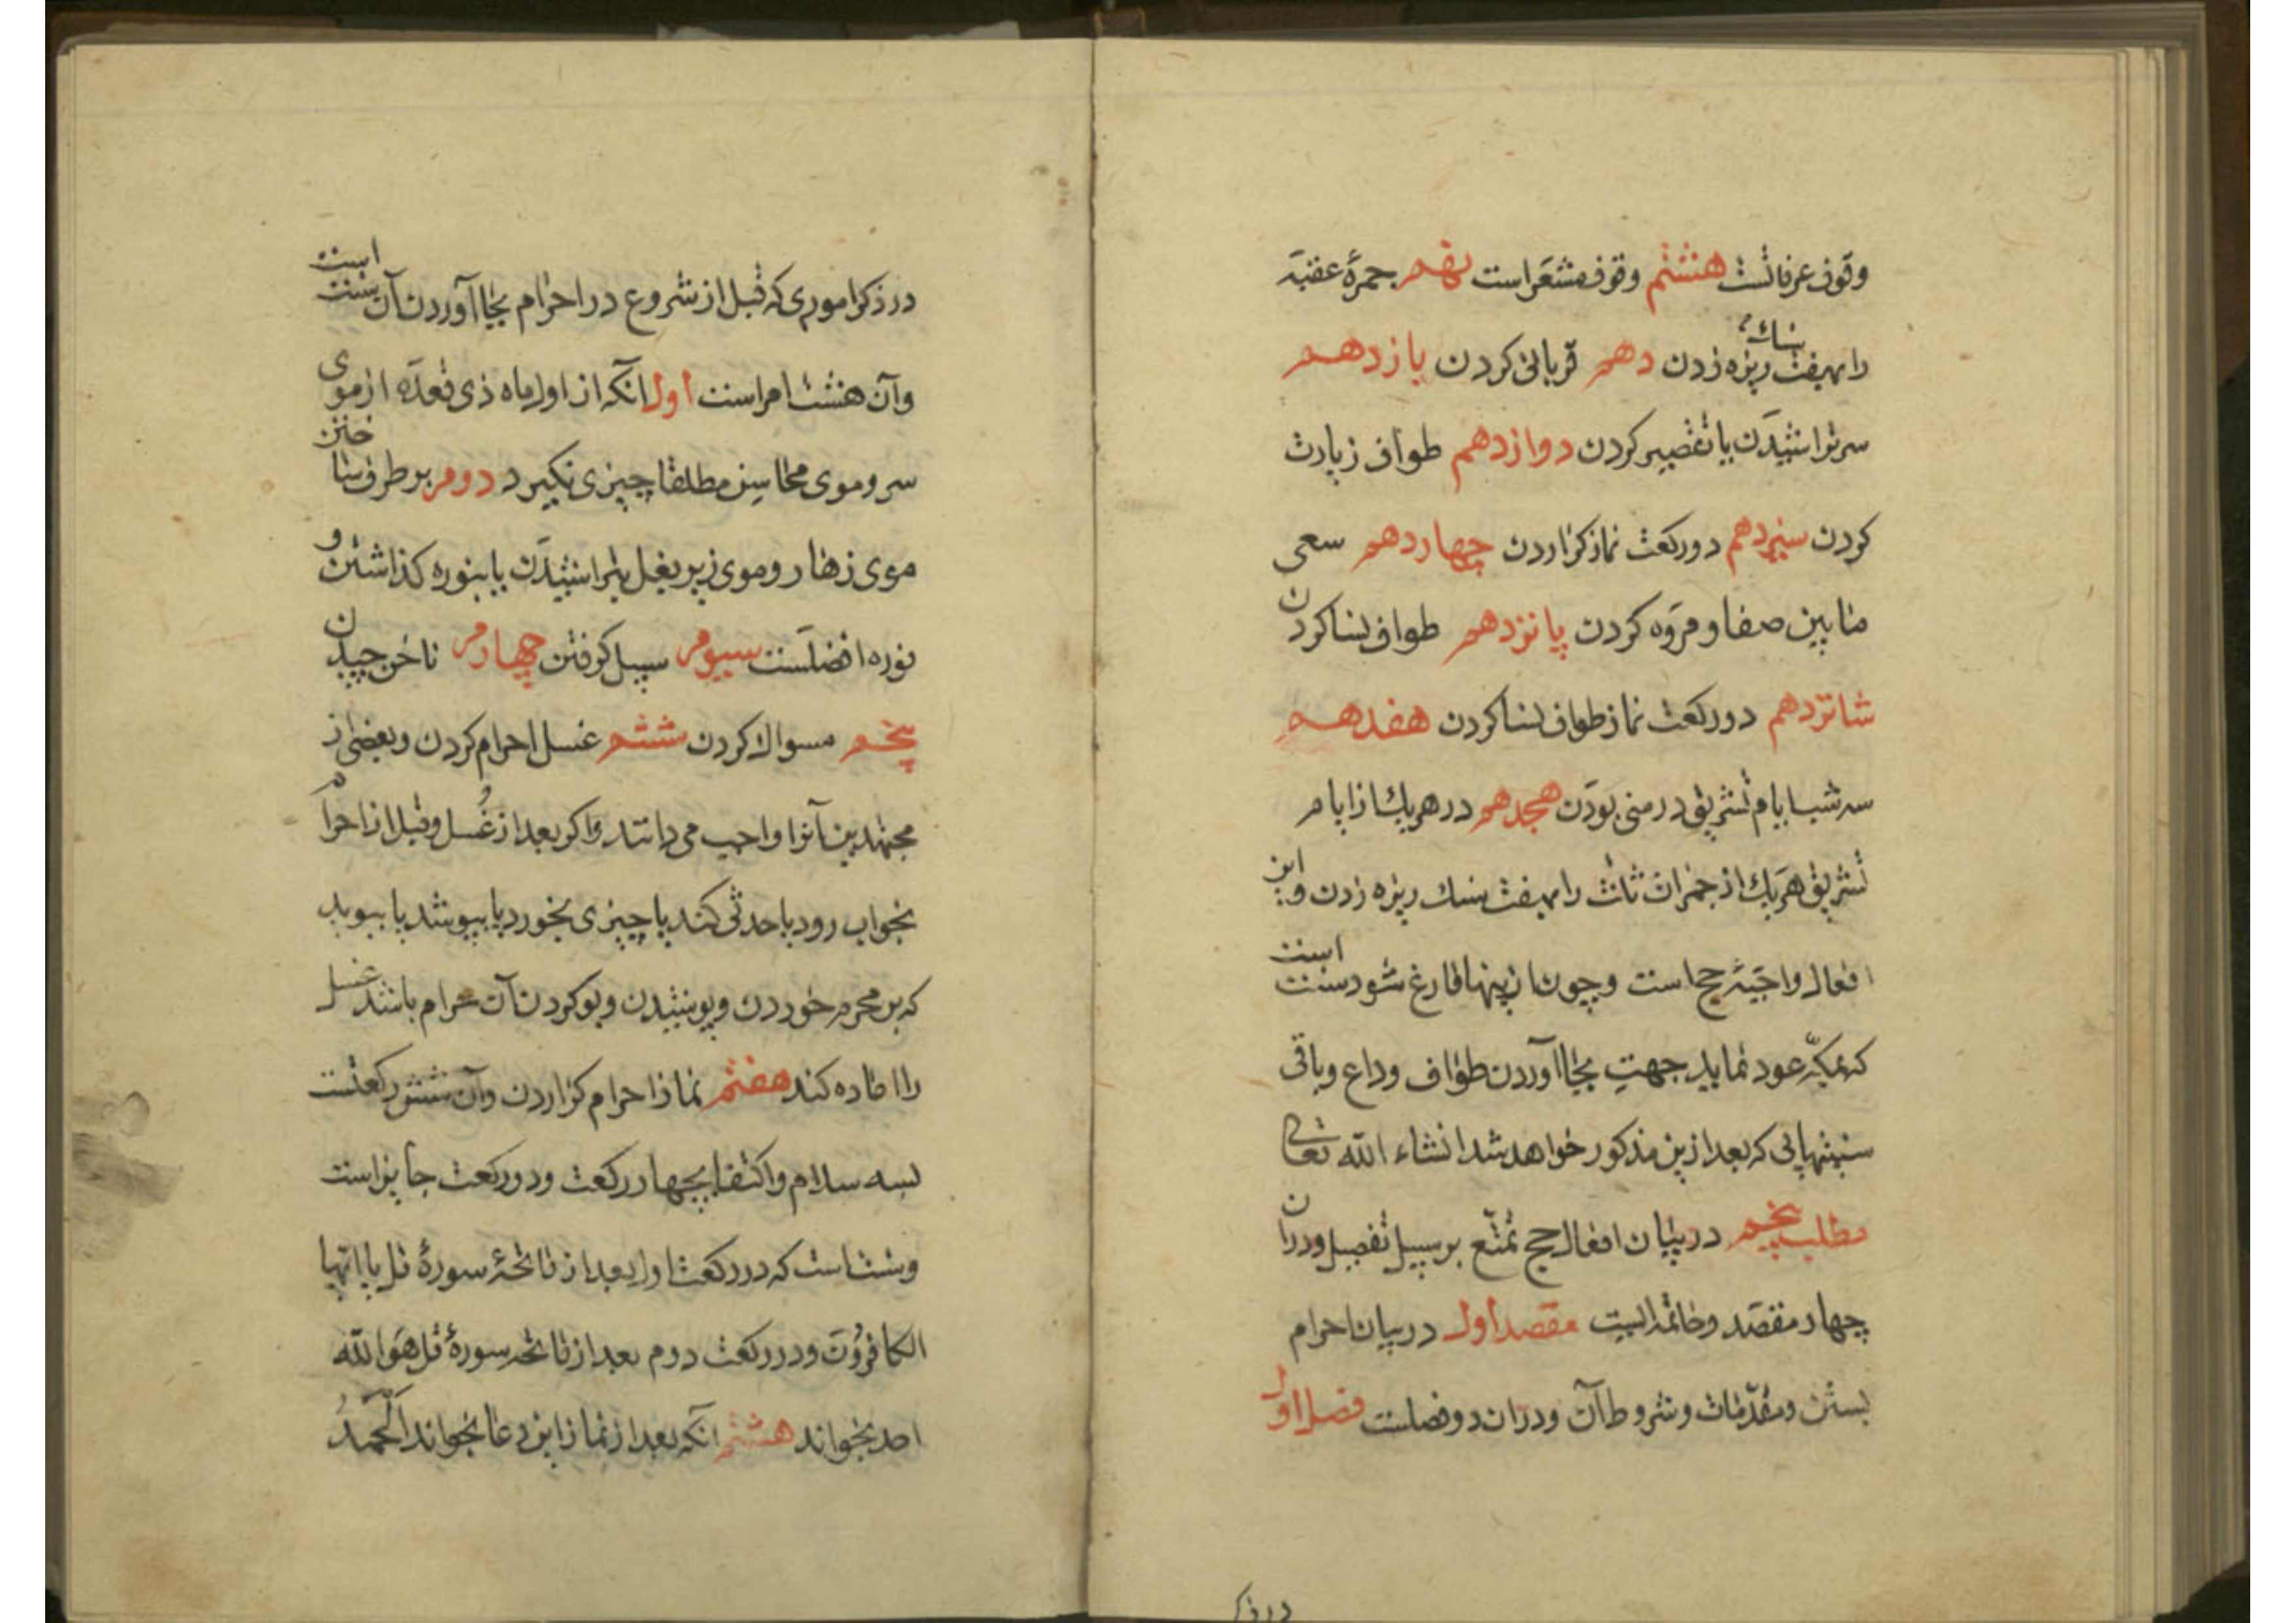 وقوف عرفاتست هشتم وقوف مشعر است نهم جمرهٔ عقبه
را بهفت سنك ریزه زدن دهم قربانی کردن یازدهم
سر تراشیدن یا تقصیر کردن دوازدهم طواف زیارت
کردن سیزدهم دو رکعت نماز کزاردن چهاردهم سعی
مابین صفا و مروه کردن پانزدهم طواف نسا کردن
شانزدهم دو رکعت نماز طواف نسا کردن هفدهم
سه شب ایام تشریق در منی بودن هجدهم در هریك از ایام
تشریق هریك از جمرات ثلث را بهفت سنك ریزه زدن و این
افعال واجبهٔ حج است و چون ازینها فارغ شود سنت است
که بمکه عود نماید جهت بجا آوردن طواف وداع و باقی
سنتهایی که بعد ازین مذکور خواهد شد انشاء الله تعالی
مطلب پنجم در بیان افعال حج تمتع بر سبیل تفصیل و در ان
چهار مقصد و خاتمه ایست مقصد اول در بیان احرام
بستن و مقدمات و شروط آن و در ان دو فصلست فصل اول
در ذکر
در ذکر اموری که قبل از شروع در احرام بجا آوردن آن سنت است
و آن هشت امر است اول آنکه از اول ماه ذی قعده از موی
سر و موی محاسن مطلقا چیزی نکیرد دوم بر طرف ساختن
موی زهار و موی زیر بغل بتراشیدن یا بنوره کذاشتن و
نوره افضلست سیوم سبیل کرفتن چهارم ناخن چیدن
پنجم مسواك کردن ششم غسل احرام کردن و بعضی از
مجتهدین آنرا واجب می دانند و اکر بعد از غسل و قبل از احرام
بخواب رود یا حدثی کند یا چیزی بخورد یا بپوشد یا ببوید
که بر محرم خوردن و پوشیدن و بو کردن آن حرام باشد غسل
را اعاده کند هفتم نماز احرام کزاردن و آن شش رکعتست
بسه سلام و اکتفا بچهار رکعت و دو رکعت جایز است
و سنت است که در رکعت اول بعد از فاتحه سورهٔ قل یا ایها
الکافرون و در رکعت دوم بعد از فاتحه سورهٔ قل هو الله
احد بخواند هشتم آنکه بعد از نماز این دعا بخواند الحمد